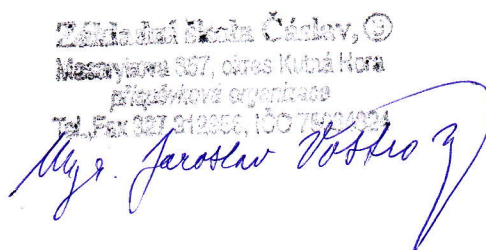 Základní škola Čáslav, 9
Masarykova 567, okres Kutná Hora
příspěvková organizace
Tel., Fax 327 312356, IČO
Mgr. Jaroslav